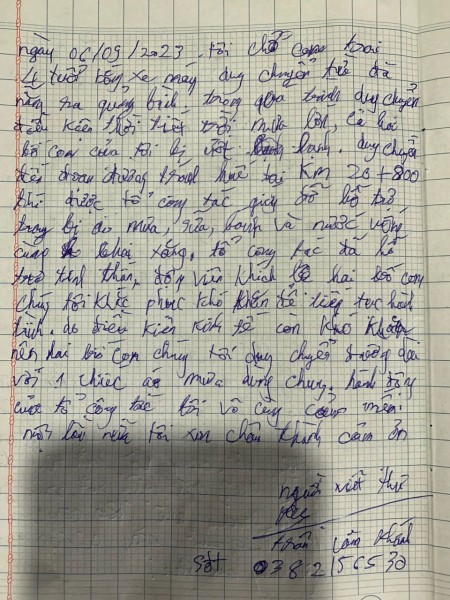 ngày 06/09/2023. tôi chở con trai
4 tuổi bằng xe máy duy chuyển từ đà
nẵng ra quảng bình. trong quá trình duy chuyển
điều kiện thời tiết trời mưa lớn, cả hai
bố con của tôi bị ướt hang. duy chuyển
đến đoạn đường tránh huế tại Km 20+800
thì được tổ công tác giúp đỡ hỗ trợ
trang bị áo mưa, sữa, bánh và nước uống
cùng khai xăng. tổ công tác đã hỗ
trợ tinh thần, động viên khích lệ hai bố con
chúng tôi khắc phục khó khăn để tiếp tục hành
trình. do điều kiện kinh tế còn khó khăn
nên hai bố con chúng tôi duy chuyển đường dài
với 1 chiếc áo mưa dùng chung. hành động
của tổ công tác tôi vô cùng cảm mến.
một lần nữa tôi xin chân thành cảm ơn
người viết thư
trần Lâm
Sđt 0382156530